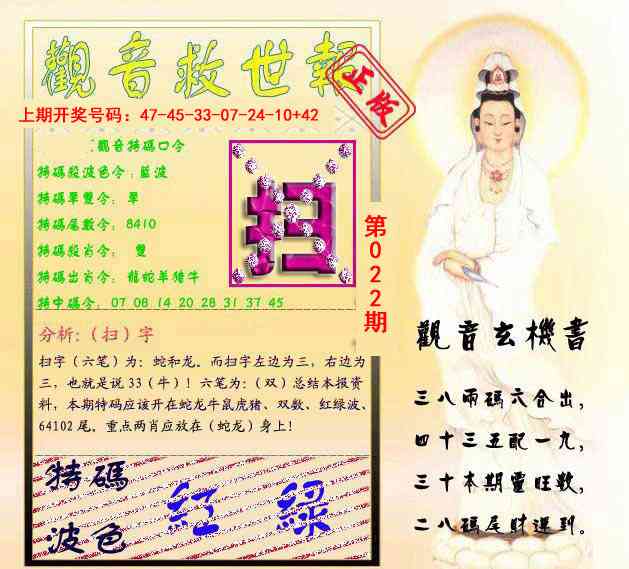 觀音救世報
正版
上期开奖号码：47-45-33-07-24-10+42
觀音特碼口令
特碼殺波色令：藍波
特碼單雙令： 單
特碼尾數令： 8410
特碼殺肖令： 雙
特碼出肖令： 龍蛇羊猪牛
特中碼令： 07 08 14 20 28 31 37 45
扫
第022期
分析:（扫）字
扫字（六笔）为：蛇和龙. 而扫字左边为三，右边为
三，也就是说 33（牛）! 六笔为:（双）总结本报资
料，本期特码应该开在蛇龙牛鼠虎猪、双数、红绿波、
64102 尾。重点两肖应放在（蛇龙）身上!
特碼
波色
紅 綠
觀音玄機書
三八兩碼六合出，
四十三五配一九，
三十本期靈旺数，
二八碼尾財運到。